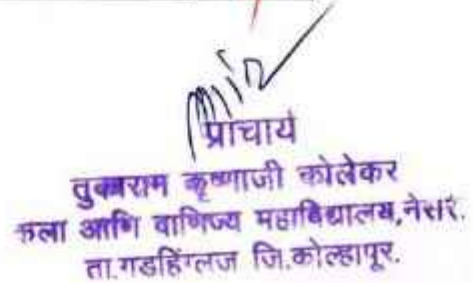 प्राचार्य
तुकाराम कृष्णाजी कोलेकर
कला आणि वाणिज्य महाविद्यालय,नेसरी.
ता.गडहिंग्लज जि.कोल्हापूर.